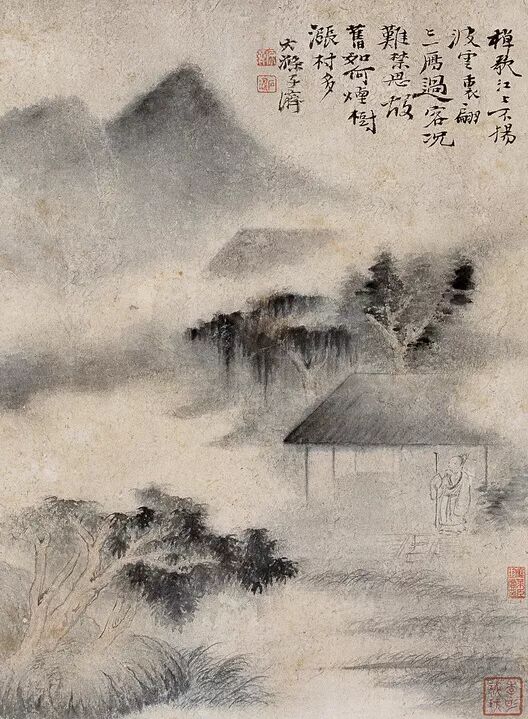 棹歌江上不揚
波雲裏翩
〻一雁過客況
難禁思故
舊如何煙樹
漲村多
大滌子濟